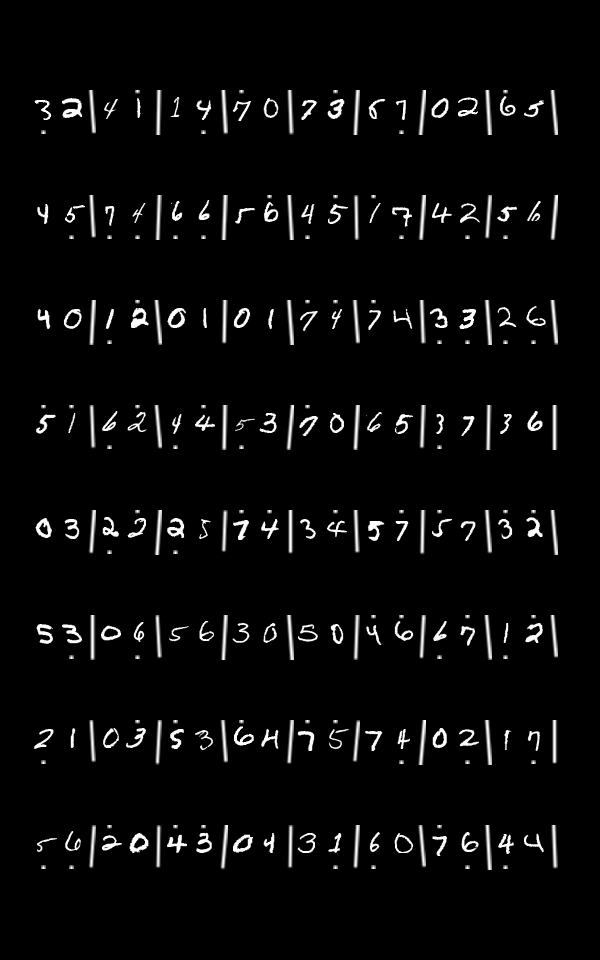 3̣ 2 | 4 1̇ | 1 4̣ | 7̇ 0 | 7̇ 3̇ | 6 7̣ | 0 2 | 6̇ 5 |
4 5̣ | 7̣ 4̣ | 6̣ 6̣ | 5 6̇ | 4̣ 5̇ | 1̇ 7̣ | 4 2̣ | 5̣ 6 |
4 0 | 1̣ 2̇ | 0 1 | 0 1 | 7̇ 4̇ | 7̇ 4 | 3̣ 3̣ | 2̣ 6̣ |
5̇ 1̇ | 6̣ 2̇ | 4̣ 4̇ | 5̣ 3 | 7̇ 0 | 6 5 | 3̣ 7 | 3 6 |
0 3 | 2̣ 2̇ | 2̣ 5 | 7̇ 4̇ | 3 4̇ | 5 7̇ | 5̇ 7 | 3 2̇ |
5 3̣ | 0 6̣ | 5 6 | 3 0 | 5 0 | 4̇ 6̇ | 6̣ 7̇ | 1̣ 2̇ |
2̣ 1 | 0 3̇ | 5̇ 3 | 6̇ 4 | 7̇ 5̇ | 7 4̣ | 0 2̣ | 1 7̣ |
5̣ 6̣ | 2̇ 0 | 4̇ 3̇ | 0 4 | 3 1̣ | 6̣ 0 | 7̇ 6̣ | 4̣ 4 |